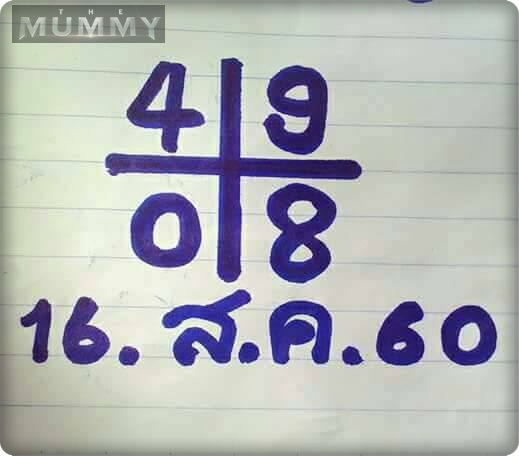 THE
MUMMY
4 9
0 8
16. ส.ค.60